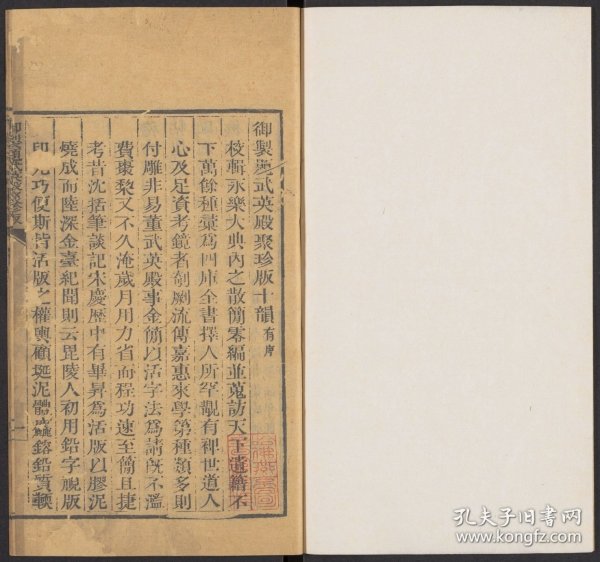 御製題武英殿聚珍版十韻有序
校輯永樂大典內之散簡零編並蒐訪天下遺籍不
下萬餘種彙爲四庫全書擇人所罕覯有裨世道人
心及足資考鏡者剞劂流傳嘉惠來學第種類多則
付雕非易董武英殿事金簡以活字法爲請旣不濫
費棗棃又不久淹歲月用力省而程功速至簡且捷
考昔沈括筆談記宋慶歷中有畢昇爲活版以膠泥
燒成而陸深金臺紀聞則云毘陵人初用鉛字視版
印尤巧便斯皆活版之權輿顧埏泥體麤鎔鉛質輭
孔夫子旧书网
www.kongfz.com